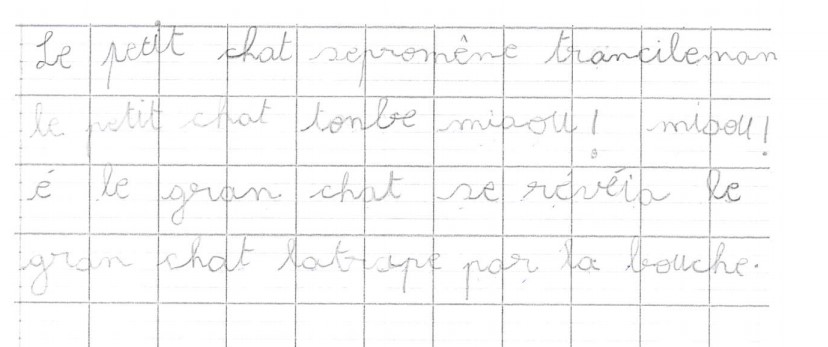 Le petit chat sepromêne trancileman
le petit chat tonbe miaou! miaou!
é le gran chat se révéia le
gran chat latrape par la bouche.